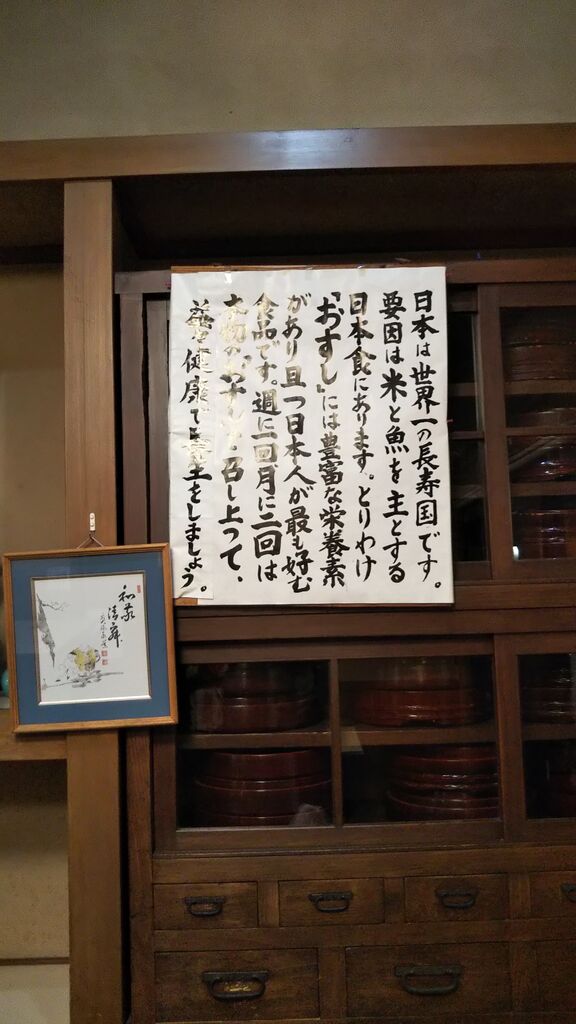 日本は世界一の長寿国です。
要因は米と魚を主とする
日本食にあります。とりわけ
「おすし」には豊富な栄養素
があり且つ日本人が最も好む
食品です。週に一回月に二回は
本物の「おすし」を召し上って、
益々健康で長生をしましょう。
和敬
清寂